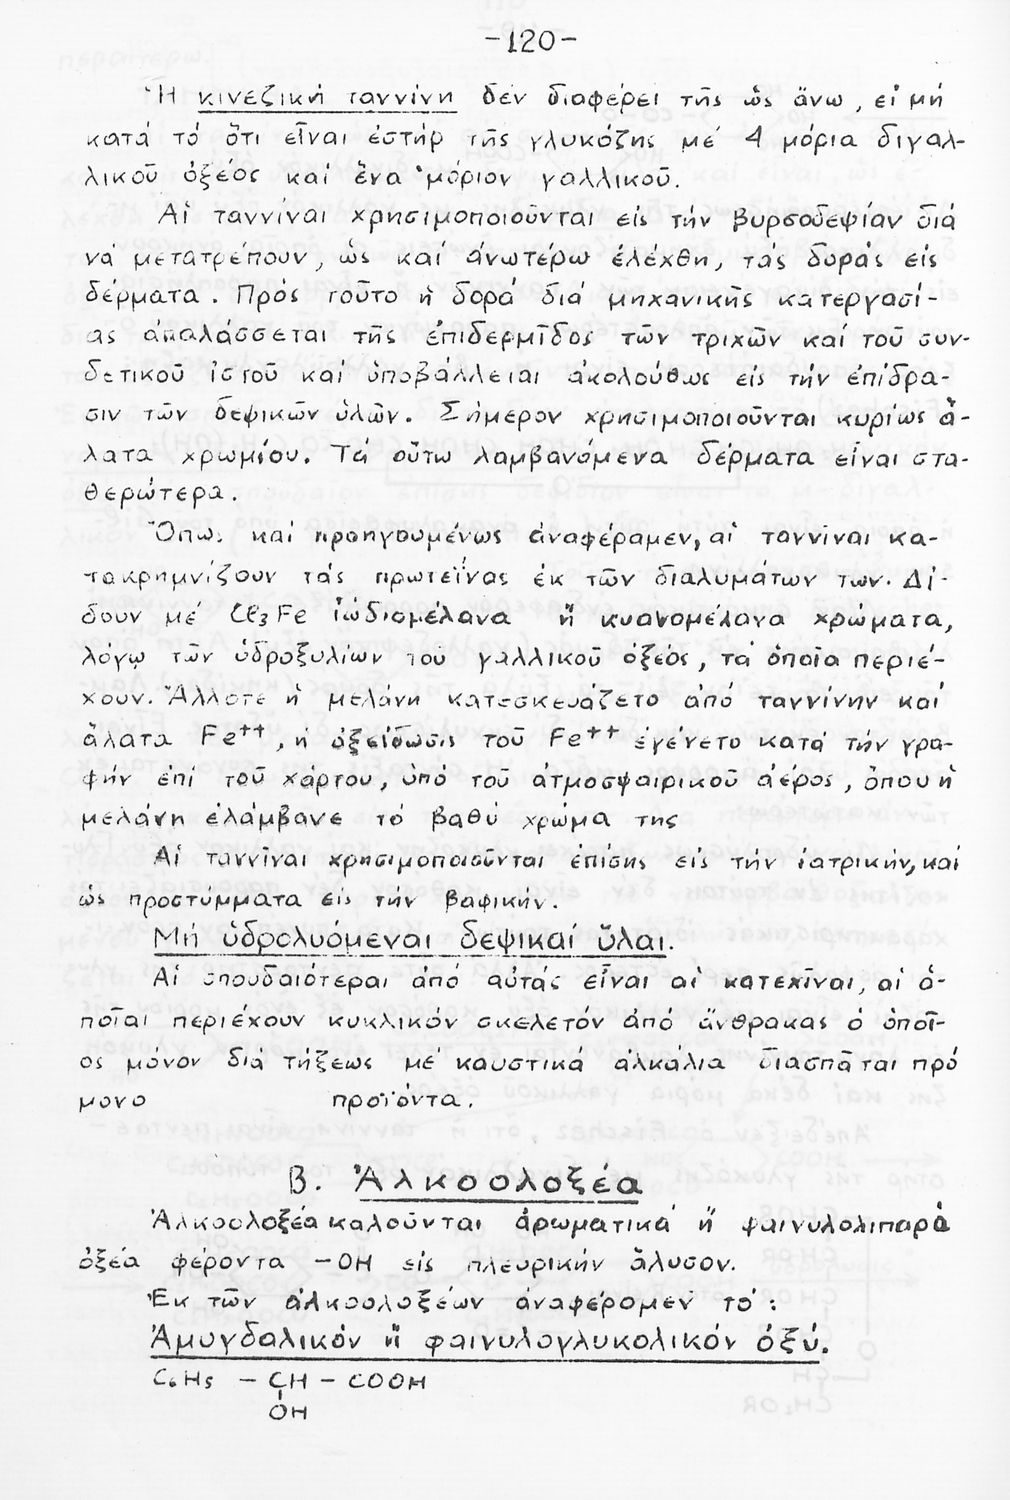 -120-
Ἡ κινεζική ταννίνη δέν διαφέρει τῆς ὡς ἄνω, εἰ μή
κατά τό ὅτι εἶναι ἐστήρ τῆς γλυκόζης μέ 4 μόρια διγαλ-
λικοῦ ὀξέος καί ἕνα μόριον γαλλικοῦ.
Αἱ ταννίναι χρησιμοποιοῦνται εἰς τήν βυρσοδεψίαν διά
νά μετατρέπουν, ὡς καί ἀνωτέρω ἐλέχθη, τάς δοράς εἰς
δέρματα. Πρός τοῦτο ἡ δορά διά μηχανικῆς κατεργασί-
ας ἀπαλάσσεται τῆς ἐπιδερμῖδος τῶν τριχῶν καί τοῦ συν-
δετικοῦ ἱστοῦ καί ὑποβάλλεται ἀκολούθως εἰς τήν ἐπίδρα-
σιν τῶν δεψικῶν ὑλῶν. Σήμερον χρησιμοποιοῦνται κυρίως ἅ-
λατα χρωμίου. Τά οὕτω λαμβανόμενα δέρματα εἶναι στα-
θερώτερα.
Ὅπως καί προηγουμένως ἀναφέραμεν, αἱ ταννίναι κα-
τακρημνίζουν τάς πρωτεΐνας ἐκ τῶν διαλυμάτων των. Δί-
δουν μέ Cl₃Fe ἰώδιομέλανα ἤ κυανομέλανα χρώματα,
λόγῳ τῶν ὑδροξυλίων τοῦ γαλλικοῦ ὀξέος, τά ὁποῖα περιέ-
χουν. Ἄλλοτε ἡ μελάνη κατεσκευάζετο ἀπό ταννίνην καί
ἅλατα Fe⁺⁺, ἡ ὀξείδωσις τοῦ Fe⁺⁺ ἐγένετο κατά τήν γρα-
φήν ἐπί τοῦ χάρτου, ὑπό τοῦ ἀτμοσφαιρικοῦ ἀέρος, ὅπου ἡ
μελάνη ἐλάμβανε τό βαθύ χρῶμα της
Αἱ ταννῖναι χρησιμοποιοῦνται ἐπίσης εἰς τήν ἰατρικήν, καί
ὡς προστύμματα εἰς τήν βαφικήν.
Μή ὑδρολυόμεναι δεψικαί ὗλαι.
Αἱ σπουδαιότεραι ἀπό αὐτάς εἶναι αἱ κατεχῖναι, αἱ ὁ-
ποῖαι περιέχουν κυκλικόν σκελετόν ἀπό ἄνθρακας ὁ ὁποῖ-
ος μόνον διά τήξεως μέ καυστικά ἀλκάλια διασπᾶται πρό
μονο προϊόντα.
β. Ἀλκοολοξέα
Ἀλκοολοξέα καλοῦνται ἀρωματικά ἤ φαινυλολιπαρά
ὀξέα φέροντα -OH εἰς πλευρικήν ἅλυσον.
Ἐκ τῶν ἀλκοολοξέων ἀναφέρομεν τό:
Ἀμυγδαλικόν ἤ φαινυλογλυκολικόν ὀξύ.
C₆H₅ - CH - COOH
OH